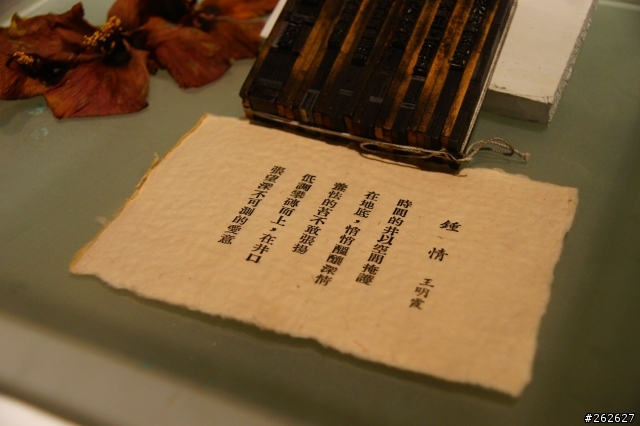 鍾情
王明霞
時間的井以空間掩護
在地底,悄悄醞釀深情
羞怯的苔不敢張揚
低調攀磚而上,在井口
張望深不可測的愛意
#262627